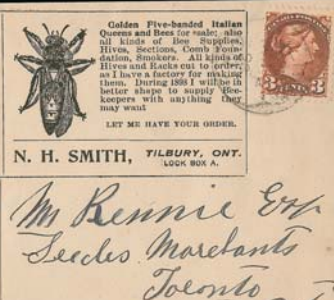 Golden Five-banded Italian
Queens and Bees for sale; also
all kinds of Bee Supplies,
Hives, Sections, Comb Foun-
dation, Smokers. All kinds of
Hives and Racks cut to order,
as I have a factory for making
them. During 1893 I will be in
better shape to supply Bee-
keepers with anything they
may want
LET ME HAVE YOUR ORDER.
N. H. SMITH, TILBURY, ONT.
LOCK BOX A.
3 CENTS 3
Mr Rennie Esq
Seeds Merchants
Toronto